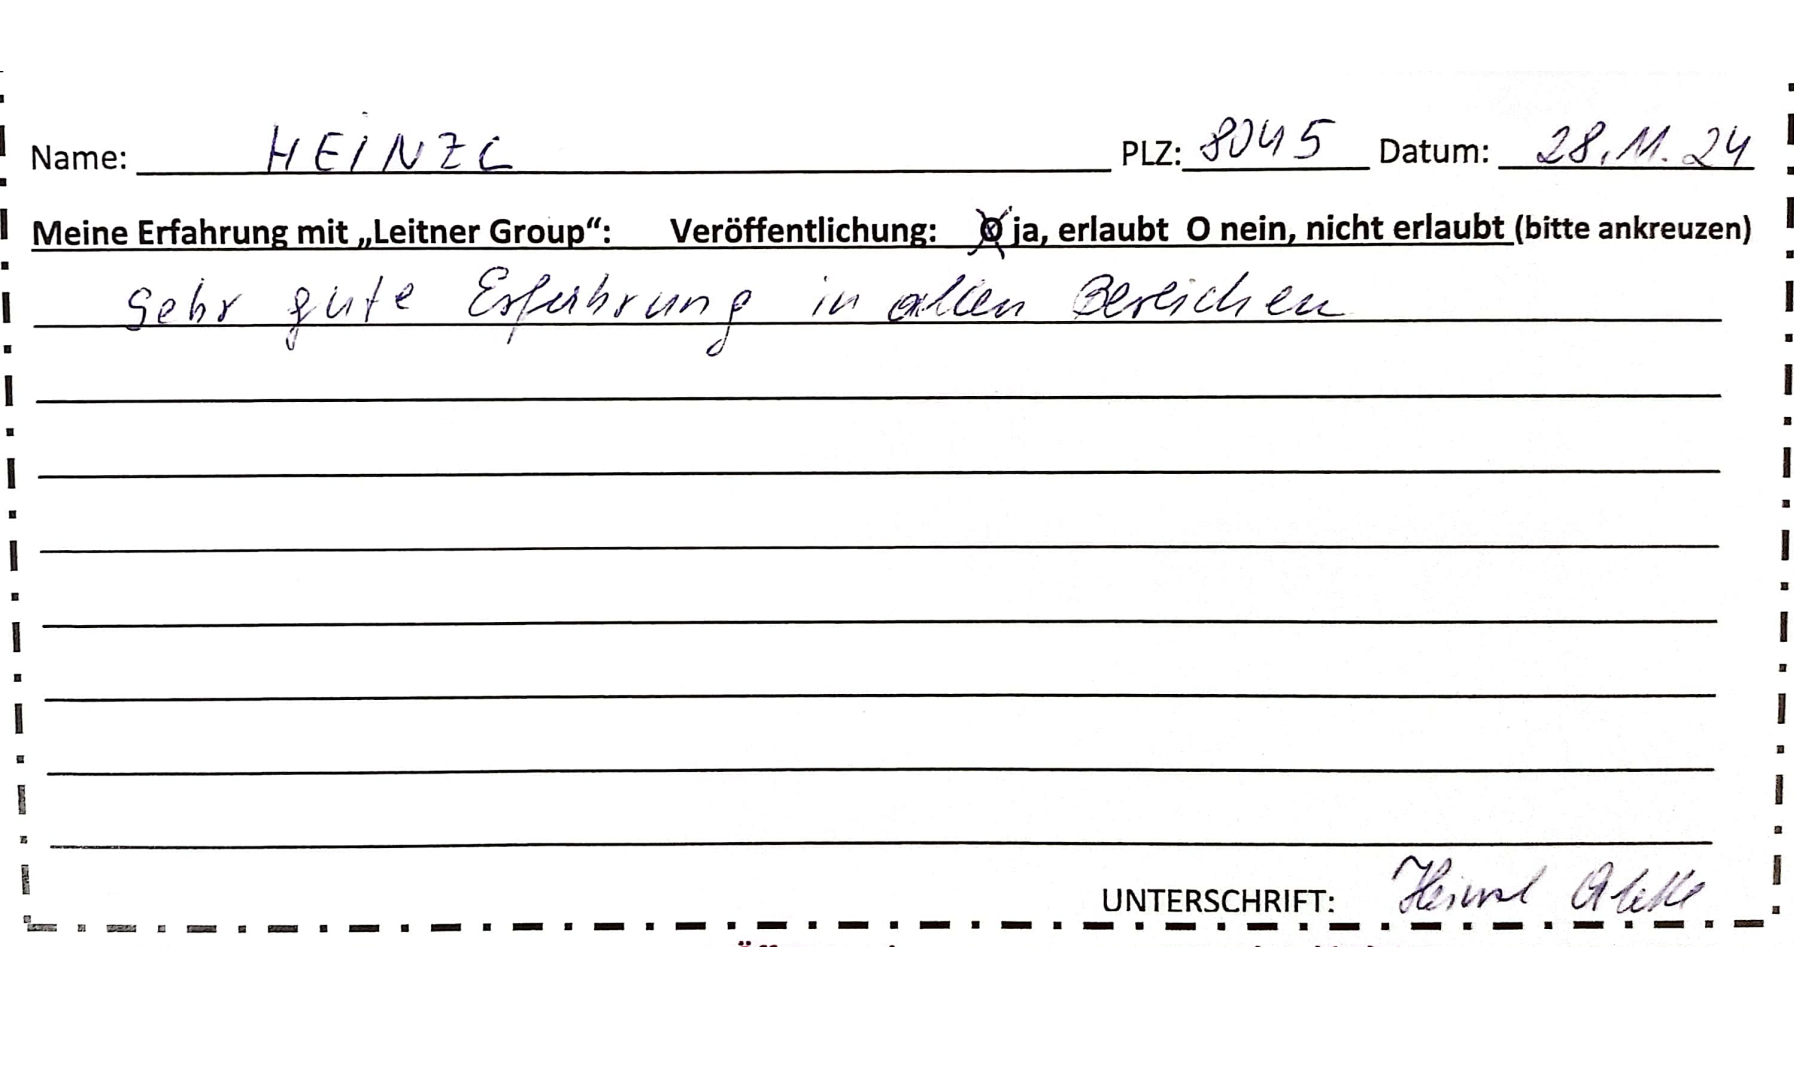 Name: HEINZL PLZ: 8045 Datum: 28.11.24
Meine Erfahrung mit „Leitner Group“: Veröffentlichung: O ja, erlaubt O nein, nicht erlaubt (bitte ankreuzen)
Sehr gute Erfahrung in allen Bereichen
UNTERSCHRIFT: Heinzl